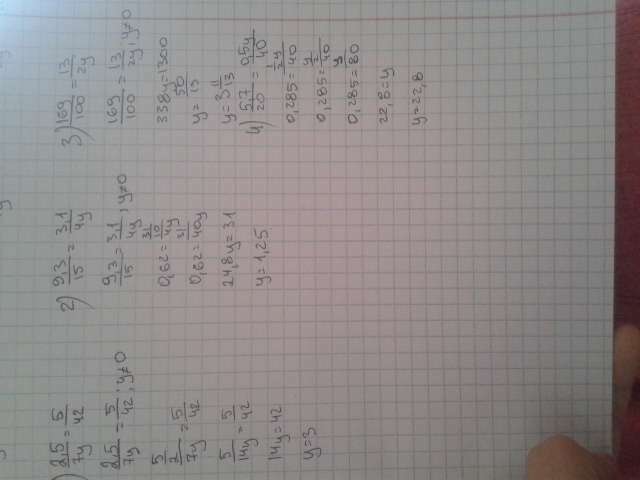 ) 2,5/7y = 5/42
2,5/7y = 5/42, y≠0
5/2/7y = 5/42
5/14y = 5/42
14y = 42
y = 3
2) 9,3/15 = 3,1/4y
9,3/15 = 3,1/4y, y≠0
0,62 = 31/10/4y
0,62 = 31/40y
24,8y = 31
y = 1,25
3) 169/100 = 13/2y
169/100 = 13/2y, y≠0
338y = 1300
y = 50/13
y = 3 11/13
4) 5,7/20 = 0,5y/40
0,285 = 1/2y/40
0,285 = y/2/40
0,285 = y/80
22,8 = y
y = 22,8